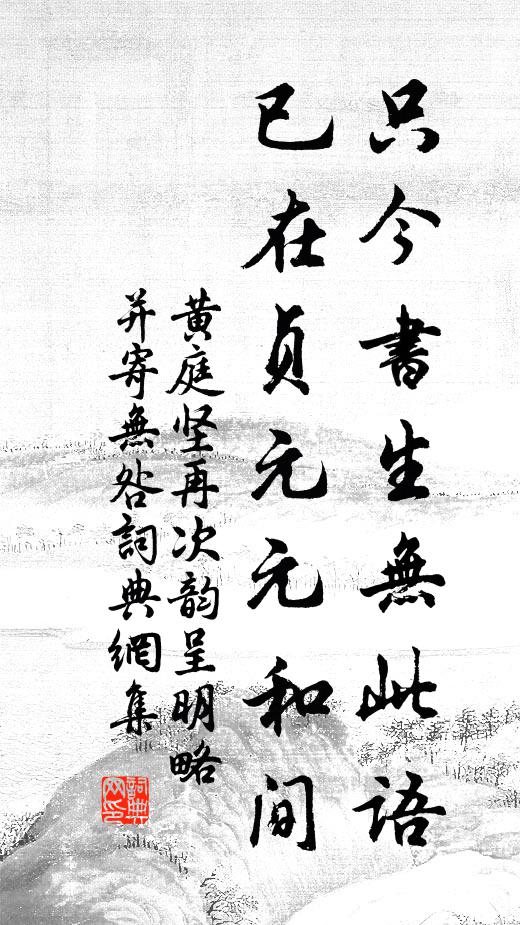 只今書生無此語
已在貞元元和間
黄庭坚再次韵呈明略
并寄無咎詞典網集
詞典網印